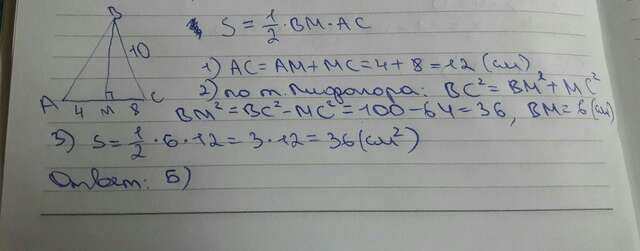 B
10
A 4 M 8 C
S = 1/2 · BM · AC
1) AC = AM + MC = 4 + 8 = 12 (см)
2) по т. Пифагора: BC² = BM² + MC²
BM² = BC² - MC² = 100 - 64 = 36, BM = 6 (см)
3) S = 1/2 · 6 · 12 = 3 · 12 = 36 (см²)
Ответ: Б)